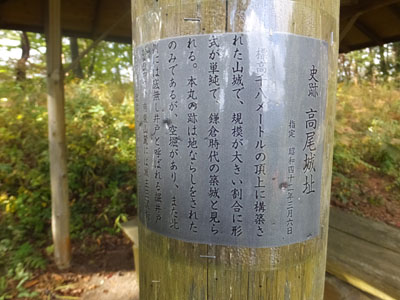 史跡 高尾城址
指定 昭和四十二年三月六日
標高千八メートルの頂上に構築さ
れた山城で、規模が大きい割合に形
式が単純で、鎌倉時代の築城と見ら
れる。本丸の跡は地ならしをされた
のみであるが、空堀があり、また北
には底無し井戸と呼ばれる